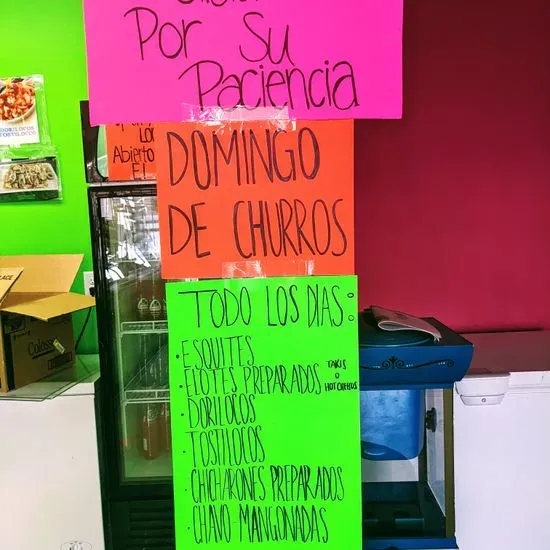 Por Su
Paciencia
Lo
Abierto
El
DOMINGO
DE CHURROS
TODO LOS DIAS:
·ESQUITES
·ELOTES PREPARADOS TAKIS O HOT CHETOS
·DORILOCOS
·TOSTILOCOS
·CHICHARONES PREPARADOS
·CHAVO-MANGONADAS
DORILOCOS
TOSTILOCOS